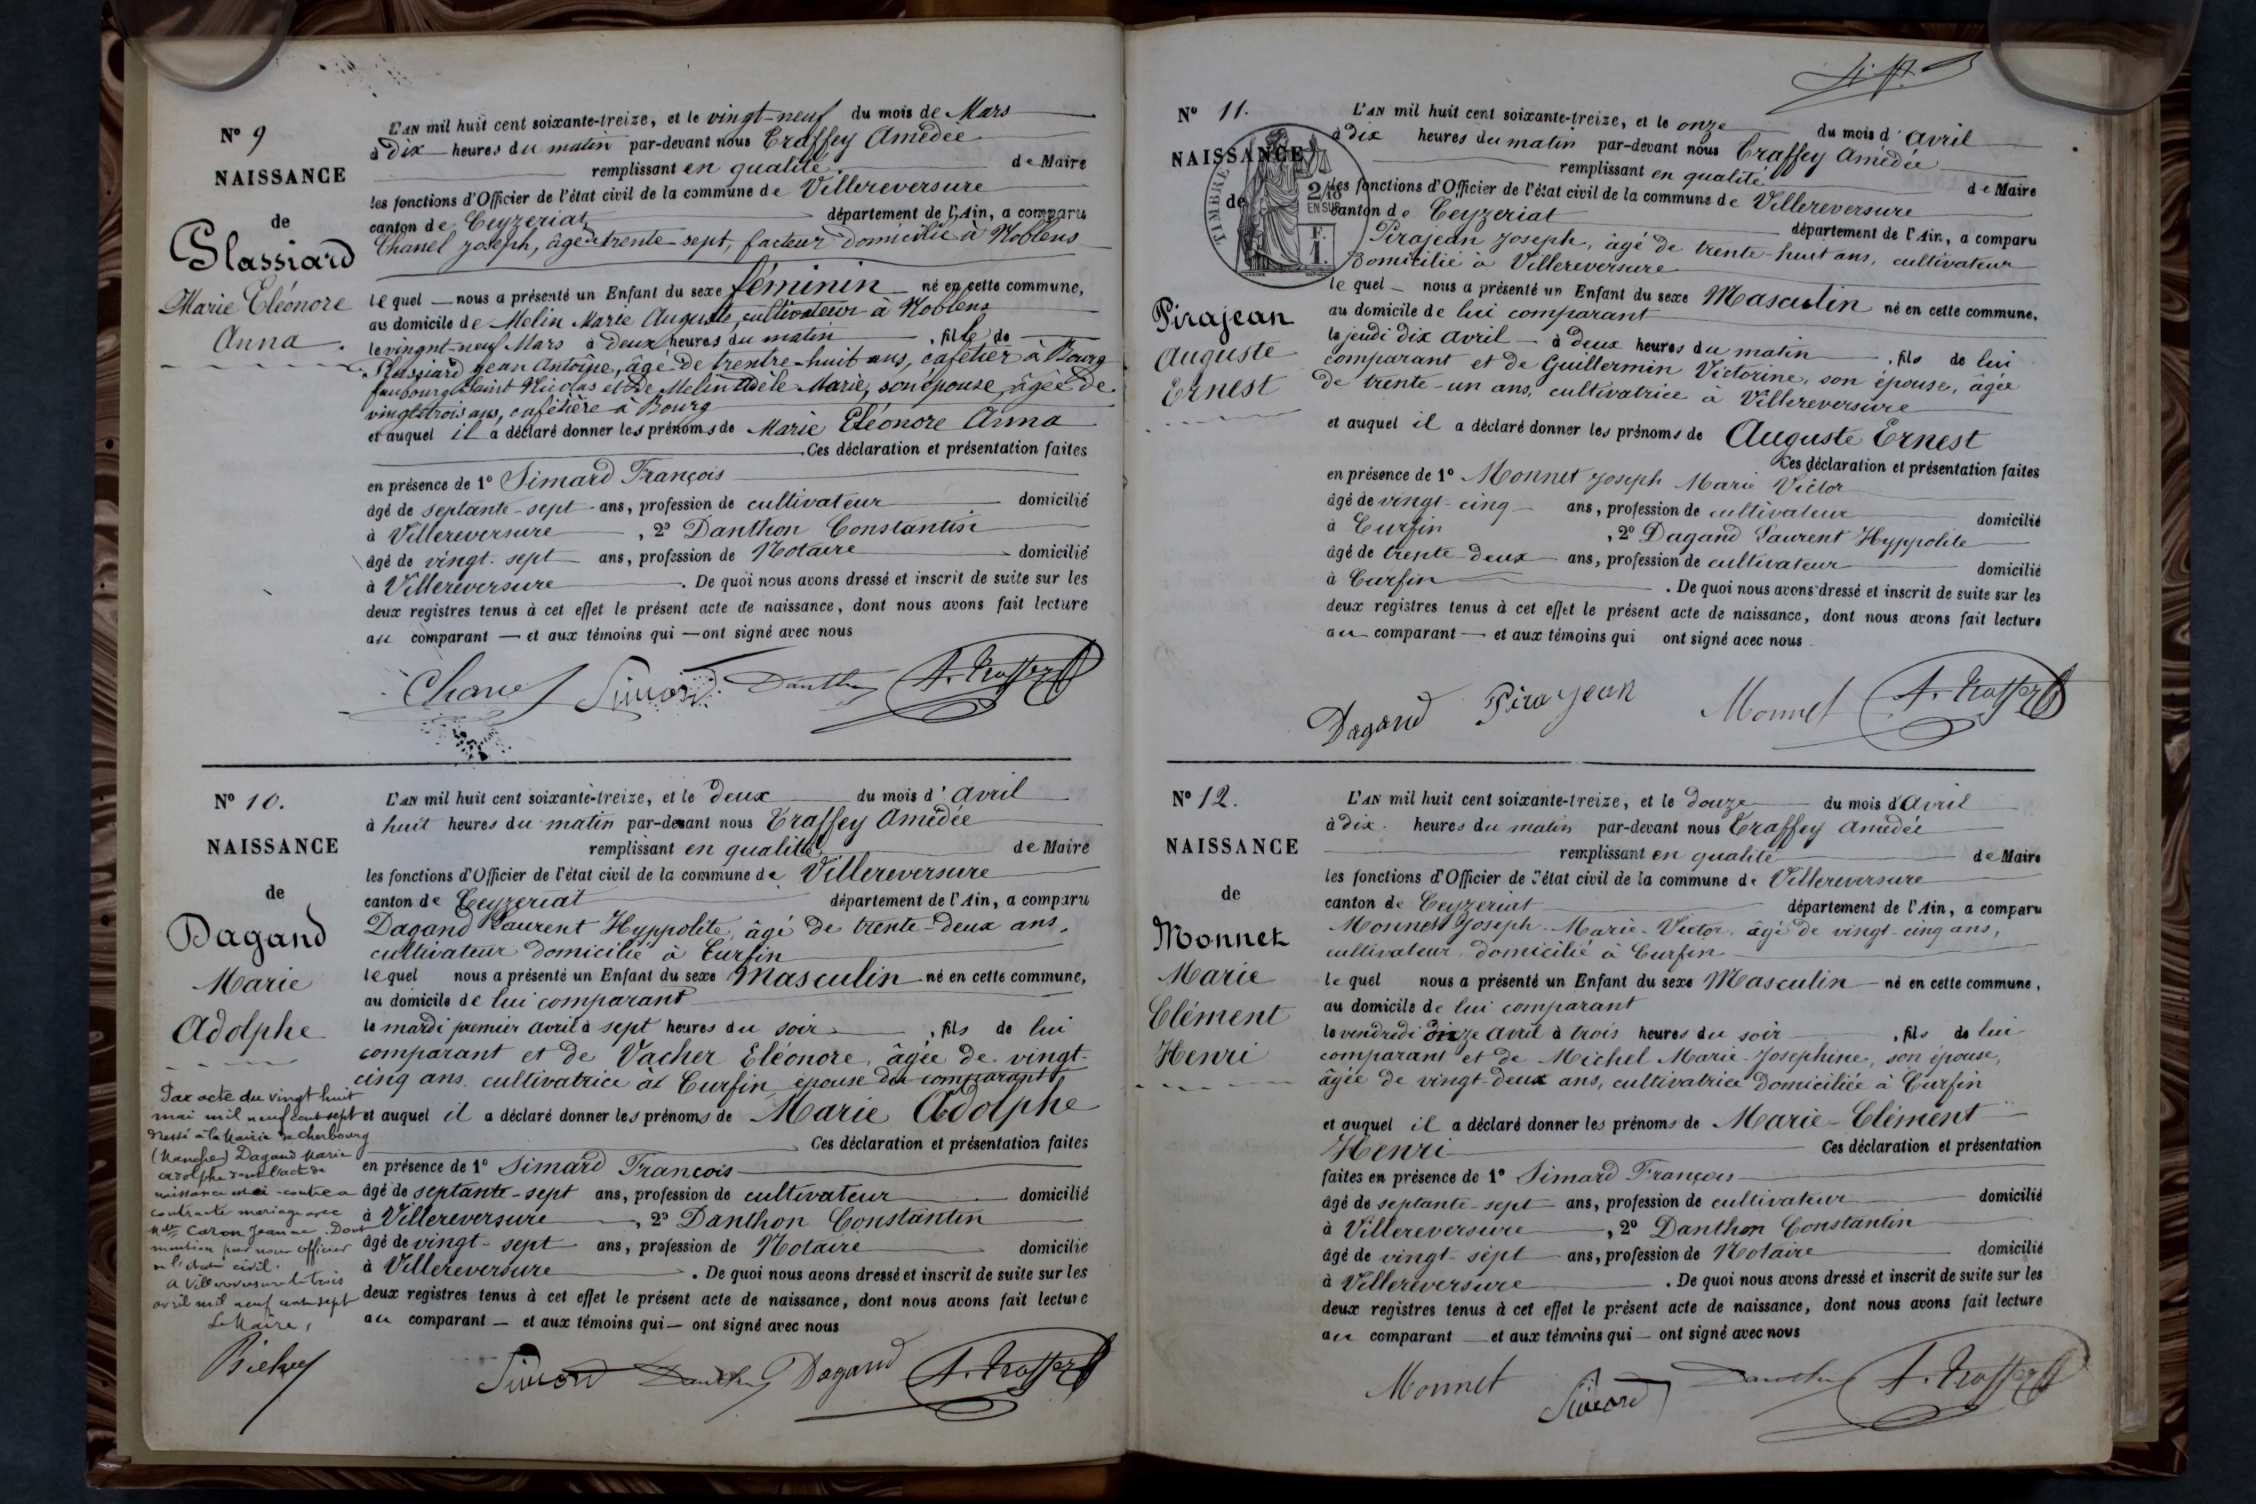 N° 9
NAISSANCE
de
Plassiard
Marie Eléonore
Anna.
L'AN mil huit cent soixante-treize, et le vingt-neuf du mois de Mars
à dix heures du matin par-devant nous Traffey Amédée
remplissant en qualité de Maire
les fonctions d'Officier de l'état civil de la commune de Villereversure
canton de Ceyzeriat département de l'Ain, a comparu
Chanel Joseph, âgé de trente-sept, facteur domicilié à Noblens
le quel nous a présenté un Enfant du sexe féminin né en cette commune,
au domicile de Melin Marie Auguste, cultivateur à Noblens
le vingnt-neuf Mars à deux heures du matin, fille de
Plassiard Jean Antoine, âgé de trentre-huit ans, cafetier à Bourg
faubourg Saint Nicolas et de Melin Adèle Marie, son épouse, âgée de
vingt-trois ans, cafetière à Bourg
et auquel il a déclaré donner les prénoms de Marie Eléonore Anna
Ces déclaration et présentation faites
en présence de 1° Simard François
âgé de septante-sept ans, profession de cultivateur domicilié
à Villereversure, 2° Danthon Constantin
âgé de vingt-sept ans, profession de Notaire domicilié
à Villereversure. De quoi nous avons dressé et inscrit de suite sur les
deux registres tenus à cet effet le présent acte de naissance, dont nous avons fait lecture
au comparant et aux témoins qui ont signé avec nous
Chanel Simard Danthon A. Traffey
N° 10.
NAISSANCE
de
Dagand
Marie
Adolphe
L'AN mil huit cent soixante-treize, et le deux du mois d'Avril
à huit heures du matin par-devant nous Traffey Amédée
remplissant en qualité de Maire
les fonctions d'Officier de l'état civil de la commune de Villereversure
canton de Ceyzeriat département de l'Ain, a comparu
Dagand Laurent Hyppolite, âgé de trente-deux ans,
cultivateur domicilié à Curfin
le quel nous a présenté un Enfant du sexe masculin né en cette commune,
au domicile de lui comparant
le mardi premier avril à sept heures du soir, fils de lui
comparant et de Vacher Eléonore, âgée de vingt-
cinq ans, cultivatrice à Curfin, épouse du comparant
et auquel il a déclaré donner les prénoms de Marie Adolphe
Ces déclaration et présentation faites
en présence de 1° Simard François
âgé de septante-sept ans, profession de cultivateur domicilié
à Villereversure, 2° Danthon Constantin
âgé de vingt-sept ans, profession de Notaire domicilié
à Villereversure. De quoi nous avons dressé et inscrit de suite sur les
deux registres tenus à cet effet le présent acte de naissance, dont nous avons fait lecture
au comparant et aux témoins qui ont signé avec nous
Par acte du vingt huit
mai mil neuf cent sept
dressé à la Mairie de Cherbourg
(Manche) Dagand Marie
Adolphe dont l'acte de
naissance est ci-contre a
contracté mariage avec
Mlle Caron Jeanne. Dont
mention par nous Officier
de l'état civil.
A Villereversure le trois
avril mil neuf cent sept
Le Maire,
Simard Danthon Dagand A. Traffey
N° 11.
NAISSANCE
de
TIMBRE
2/10
EN SUS
F.
1.
Pirajean
Auguste
Ernest
L'AN mil huit cent soixante-treize, et le onze du mois d'Avril
à dix heures du matin par-devant nous Traffey Amédée
remplissant en qualité de Maire
les fonctions d'Officier de l'état civil de la commune de Villereversure
canton de Ceyzeriat département de l'Ain, a comparu
Pirajean Joseph, âgé de trente-huit ans, cultivateur
domicilié à Villereversure
le quel nous a présenté un Enfant du sexe Masculin né en cette commune,
au domicile de lui comparant
le jeudi dix avril à deux heures du matin, fils de lui
comparant et de Guillermin Victorine, son épouse, âgée
de trente-un ans, cultivatrice à Villereversure
et auquel il a déclaré donner les prénoms de Auguste Ernest
Ces déclaration et présentation faites
en présence de 1° Monnet Joseph Marie Victor
âgé de vingt-cinq ans, profession de cultivateur domicilié
à Curfin, 2° Dagand Laurent Hyppolite
âgé de trente-deux ans, profession de cultivateur domicilié
à Curfin. De quoi nous avons dressé et inscrit de suite sur les
deux registres tenus à cet effet le présent acte de naissance, dont nous avons fait lecture
au comparant et aux témoins qui ont signé avec nous.
Dagand Pirajean Monnet A. Traffey
N° 12.
NAISSANCE
de
Monnet
Marie
Clément
Henri
L'AN mil huit cent soixante-treize, et le douze du mois d'Avril
à dix heures du matin par-devant nous Traffey Amédée
remplissant en qualité de Maire
les fonctions d'Officier de l'état civil de la commune de Villereversure
canton de Ceyzeriat département de l'Ain, a comparu
Monnet Joseph-Marie-Victor, âgé de vingt-cinq ans,
cultivateur, domicilié à Curfin
le quel nous a présenté un Enfant du sexe Masculin né en cette commune,
au domicile de lui comparant
le vendredi onze avril à trois heures du soir, fils de lui
comparant et de Michel Marie-Josephine, son épouse,
âgée de vingt-deux ans, cultivatrice domiciliée à Curfin
et auquel il a déclaré donner les prénoms de Marie-Clément
Henri Ces déclaration et présentation
faites en présence de 1° Simard François
âgé de septante-sept ans, profession de cultivateur domicilié
à Villereversure, 2° Danthon Constantin
âgé de vingt-sept ans, profession de Notaire domicilié
à Villereversure. De quoi nous avons dressé et inscrit de suite sur les
deux registres tenus à cet effet le présent acte de naissance, dont nous avons fait lecture
au comparant et aux témoins qui ont signé avec nous
Monnet Simard Danthon A. Traffey